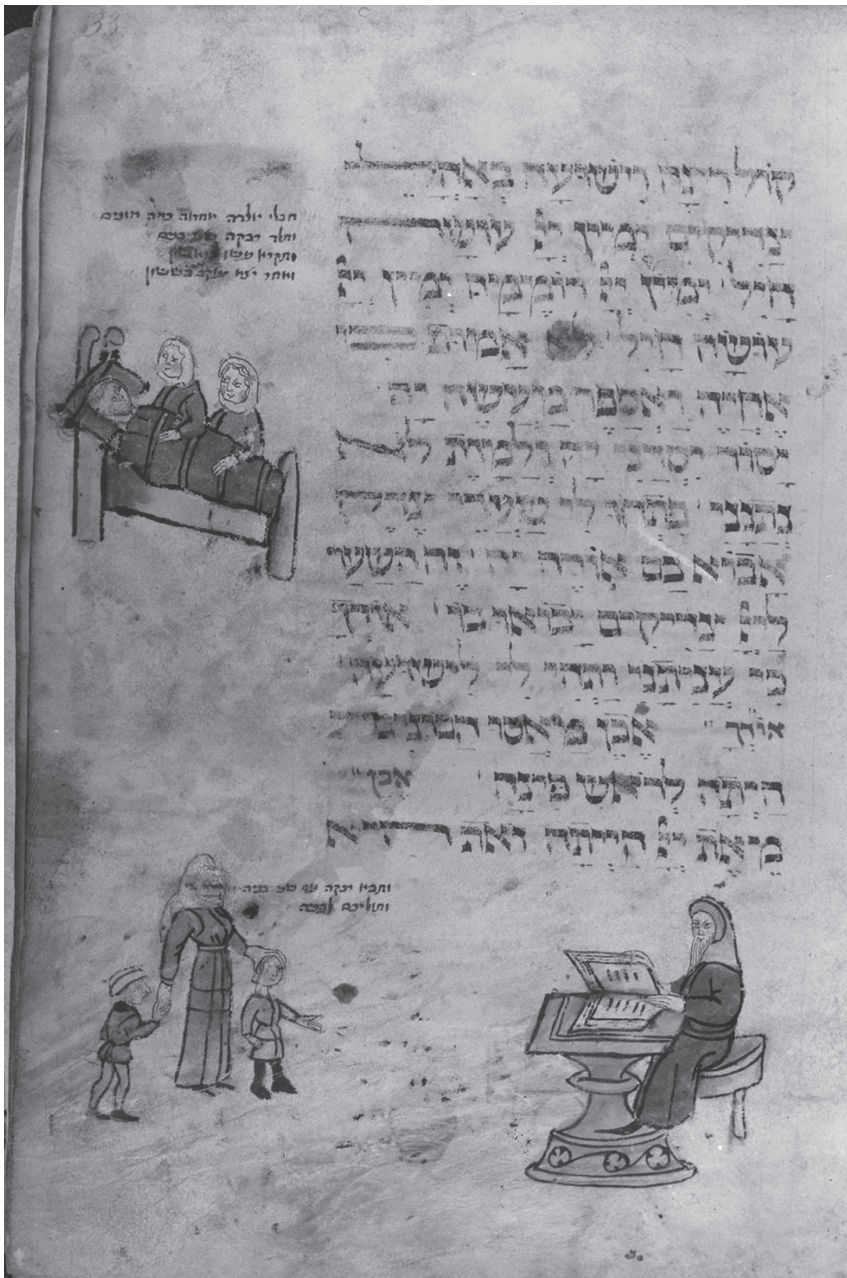 33
קול רינה וישועה באהל
צדיקים ימין יי עושה
חיל' ימין יי רוממה ימין יי
עושה חיל' לא אמות
אחיה ואספר מעשה יה
יסור יסרני יה ולמות לא
נתנני' פתחו לי שערי צדק
אבוא בם אודה יה' זה השער
ליי צדיקים יבואו בו' אודך
כי עניתני ותהי לי לישועה
אודך" אבן מאסו הבונים
היתה לראש פינה' אבן"
מאת יי הייתה זאת היא
חבלי יולדה
ותלד רבקה בנים
ואחר יצא
ותביא רבקה שני בניה